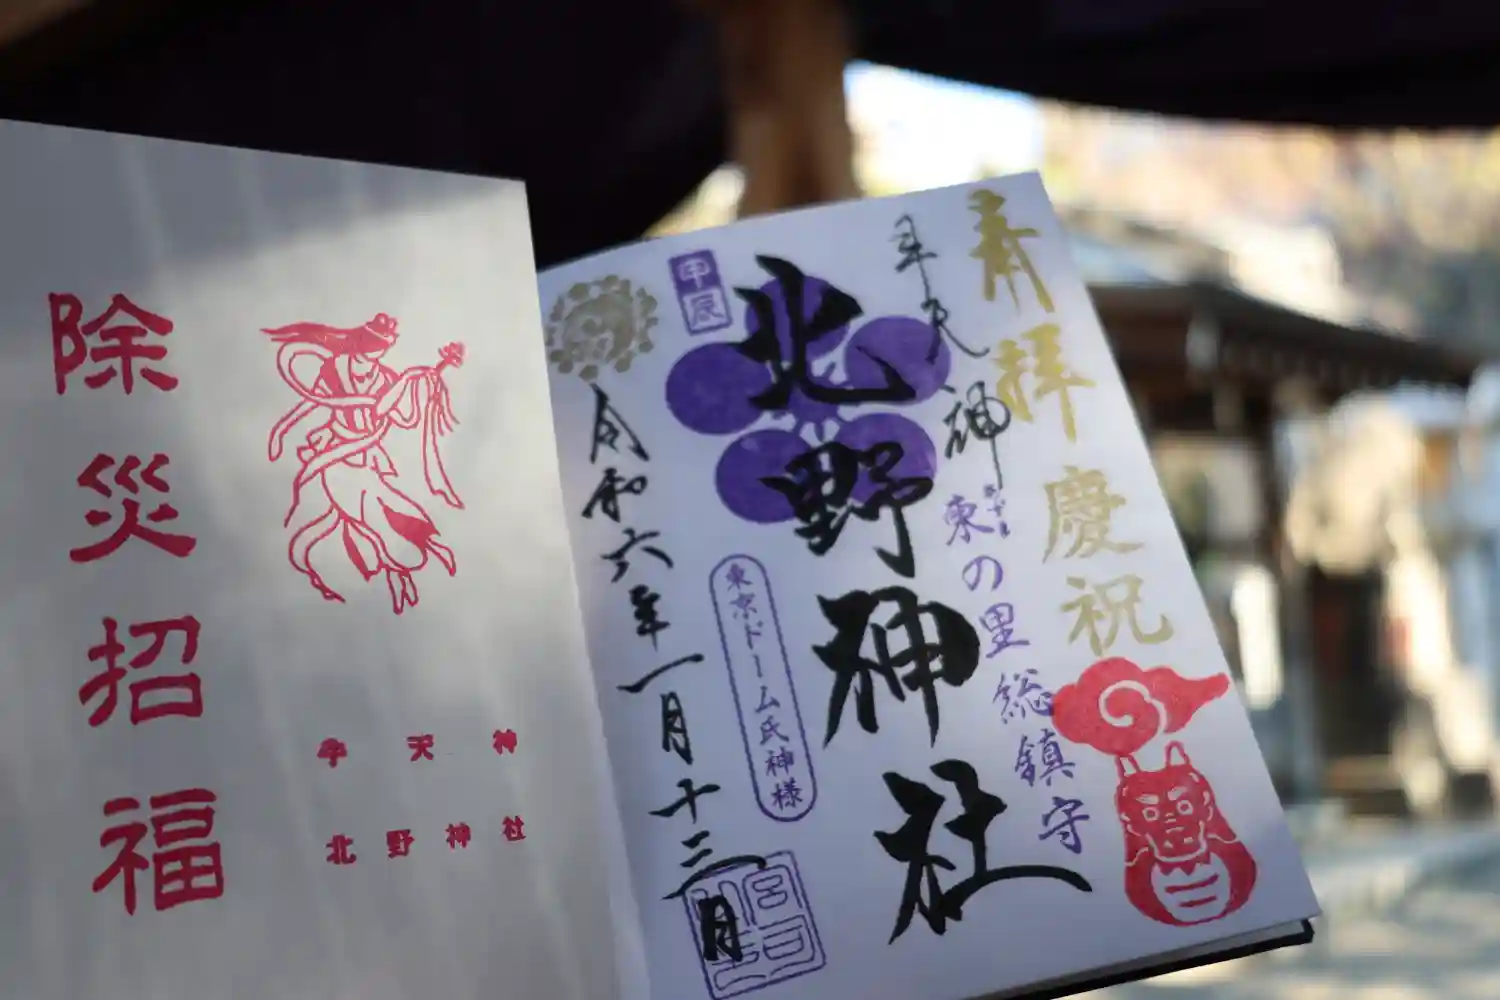 除災招福
牛天神
北野神社
奉拝 慶祝
牛天神
あずま
東の里総鎮守
北野神社
甲辰
東京ドーム氏神様
令和六年一月十三日